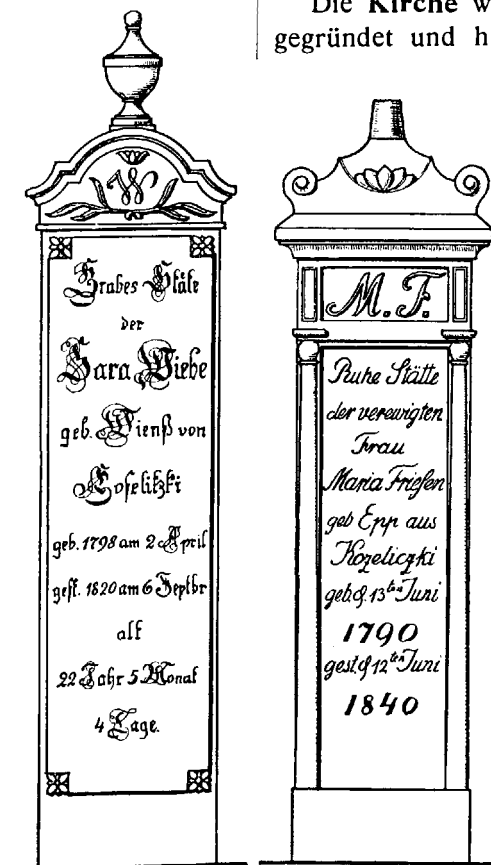 Die Kirche w
gegründet und h
W
Grabes Stäte
der
Sara Wiebe
geb. Wienß von
Koselitzki
geb. 1798 am 2 April
gest. 1820 am 6 Septbr
alt
22 Jahr 5 Monat
4 Tage.
M. F.
Ruhe Stätte
der verewigten
Frau
Maria Friesen
geb Epp aus
Kozeliczki
geb. d. 13ten Juni
1790
gest. d 12ten Juni
1840